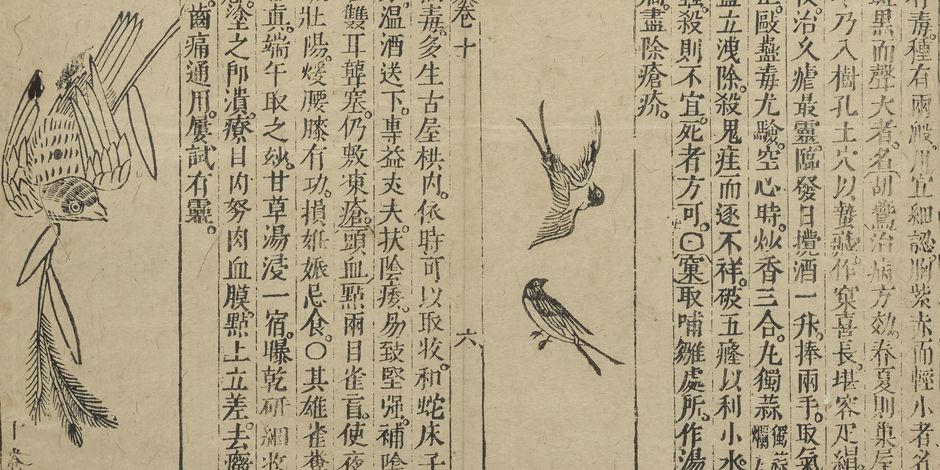 有毒。種有兩般。用宜細認。胸紫赤而輕小者名
斑黑而聲大者。名胡鷰。治病方効。春夏則巢屋
乃入樹孔土穴以蟄藏。作窠喜長。堪容疋絹
治久瘧最靈。臨發日攪酒一升。捧兩手。取氣
正。敺蠱毒尤驗。空心時。炒香三合。丸獨蒜獨蒜爛
立洩除。殺鬼疰而逐不祥。破五癃以利小水
殺則不宜。死者方可。〇窠取哺雛處所。作湯
盡除瘡疥。
卷十 六
毒。多生古屋栱內。依時可以取收。和蛇床子
溫酒送下。專益丈夫。扶陰痿。易致堅强。補陰
雙耳聾塞。仍敷凍瘡。頭血點兩目雀盲。使夜
壯陽。煖腰膝有功。損娠忌食。〇其雄雀糞
直。端午取之妙。甘草湯浸一宿。曝乾研細收
塗之即潰。療目內努肉血膜。點上立差。去
齒痛通用。屢試有靈。